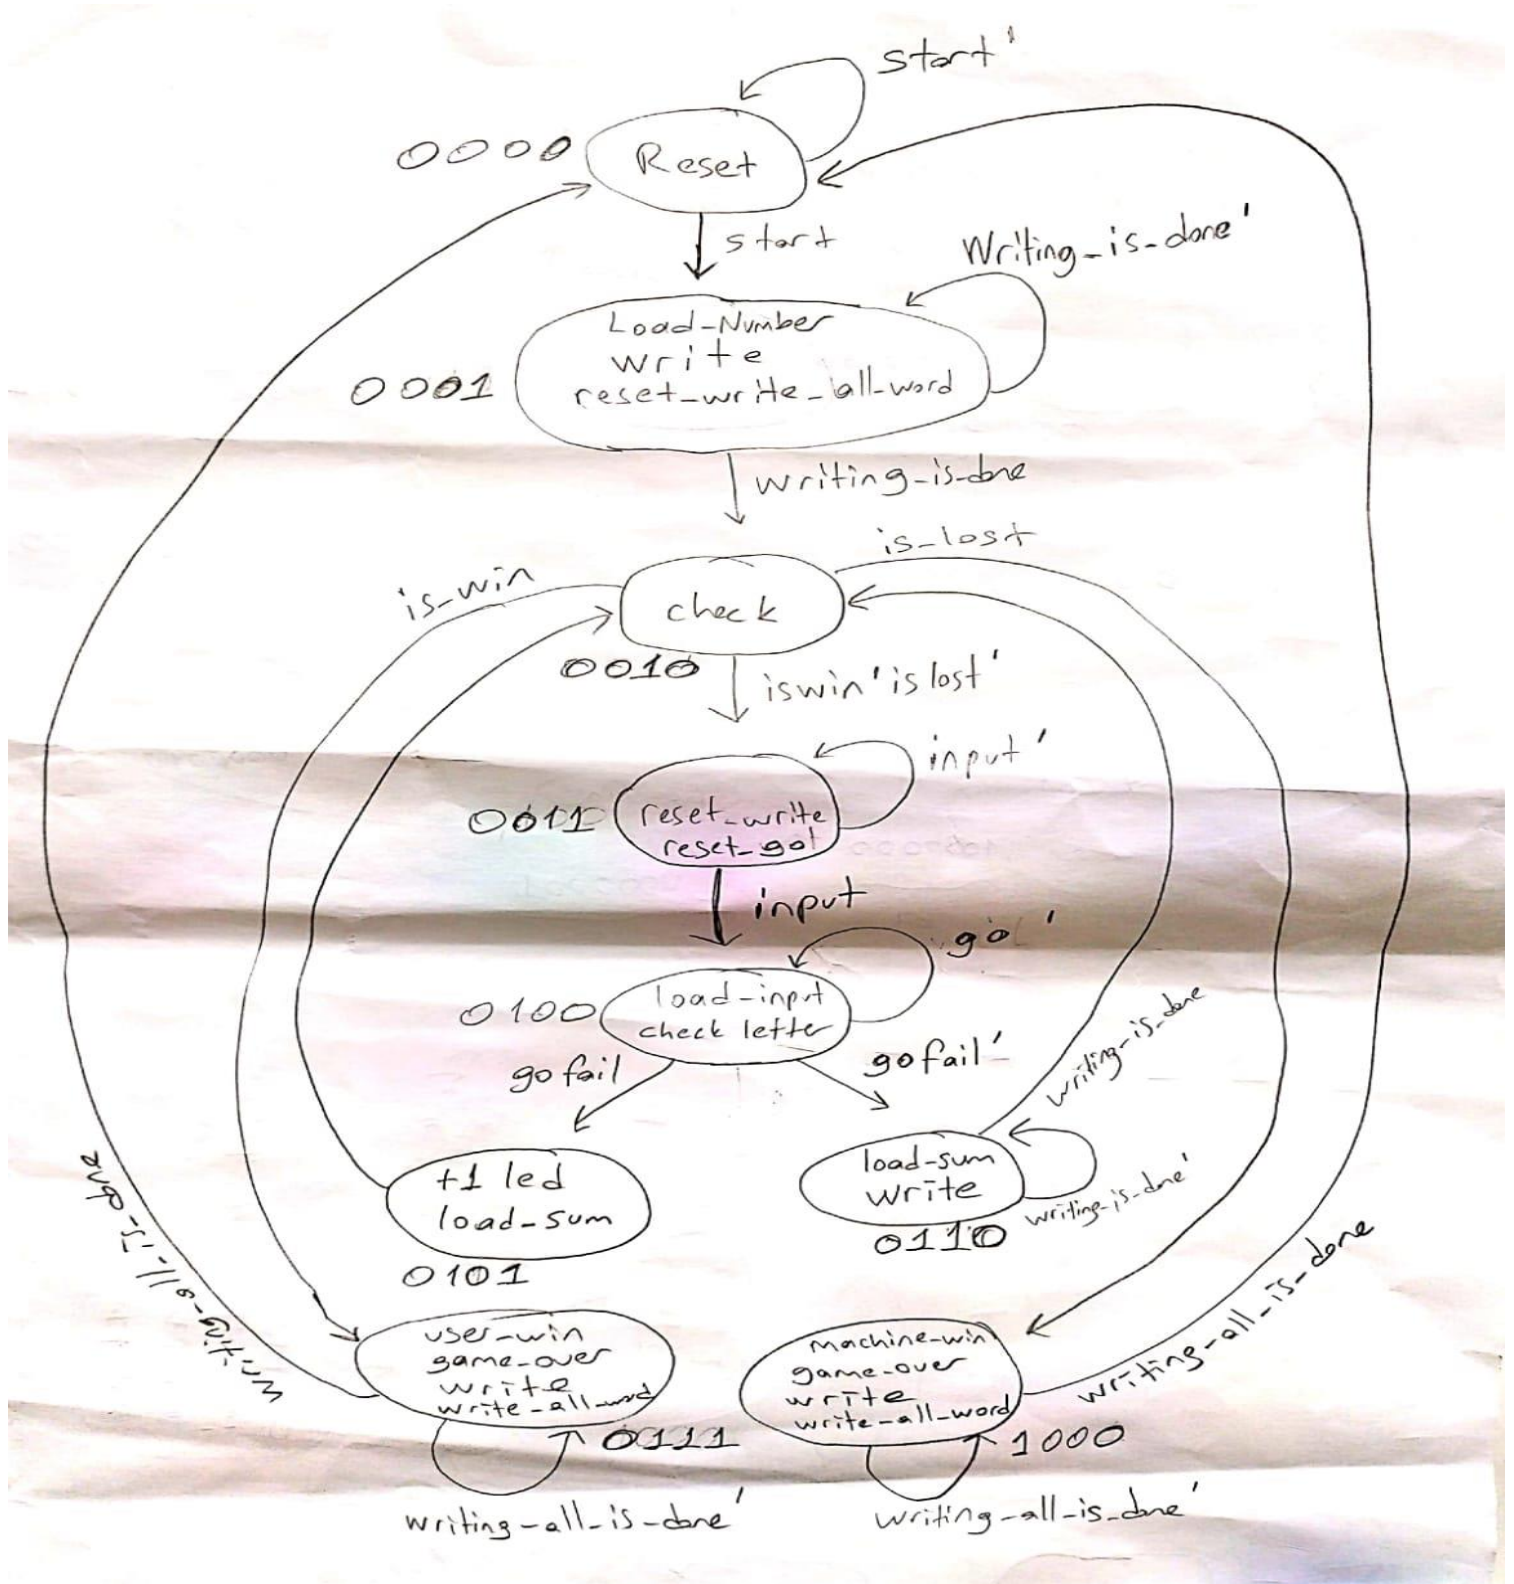 start'
0000
Reset
start
Writing_is_done'
Load_Number
write
reset_write_all_word
0001
writing_is_done
is_lost
is_win
check
0010
iswin' islost'
input'
0011
reset_write
reset_go
input
go'
0100
load_input
check letter
go fail
go fail'
writing_is_done
+1 led
load_sum
0101
load_sum
write
writing_is_done'
0110
writing_all_is_done
writing_all_is_done
user_win
game_over
write
write_all_word
0111
machine_win
game_over
write
write_all_word
1000
writing_all_is_done'
writing_all_is_done'